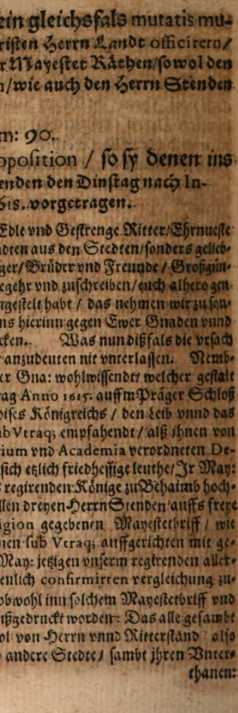 ein gleichsfals mutatis mu-
risten Herrn Landt officirern/
r Mayestet Räthen/sowol den
n/wie auch den Herrn Stenden
m: 90.
oposition / so sy denen ins
enden den Dinstag nach In-
618. vorgetragen.
Edle vnd Gestrenge Ritter/Ehrnueste
dten aus den Stedten/sonders gelieb-
ger/Brüder vnd Freunde / Großgün-
egehr vnd zuschreiben/euch alhero gen
ngestelt habt / das nehmen wir zu son-
ns hierinn gegen Ewer Gnaden vnnd
cken. Was nun dißfals die vrsach
anzudeuten nit vnterlassen. Nemb-
er Gna: wohlwissendt welcher gestalt
ag Anno 1615. auffm Präger Schloß
oises Königreichs / den Leib vnnd das
ub Vtraq; empfahendt / alß ihnen von
rium vnd Academia verordneten De-
sich etzlich friedhessige leuthe/Ir May:
s regirenden Könige zu Behaimb hoch-
llen dreyen Herrn Stenden auffs freye
gion gegebenen Mayestetbriff / wie
nen sub Vtraq; auffgerichten mit ge-
May: jetzigen vnserm regirenden aller-
enlich confirmirren vergleichung zu-
obwohl inn solchem Mayestetbriff vnd
ißgedruckt worden: Das alle gesambt
ol von Herrn vnnd Ritterstand also
andere Stedte / sambt jhren Vnter-
thanen: